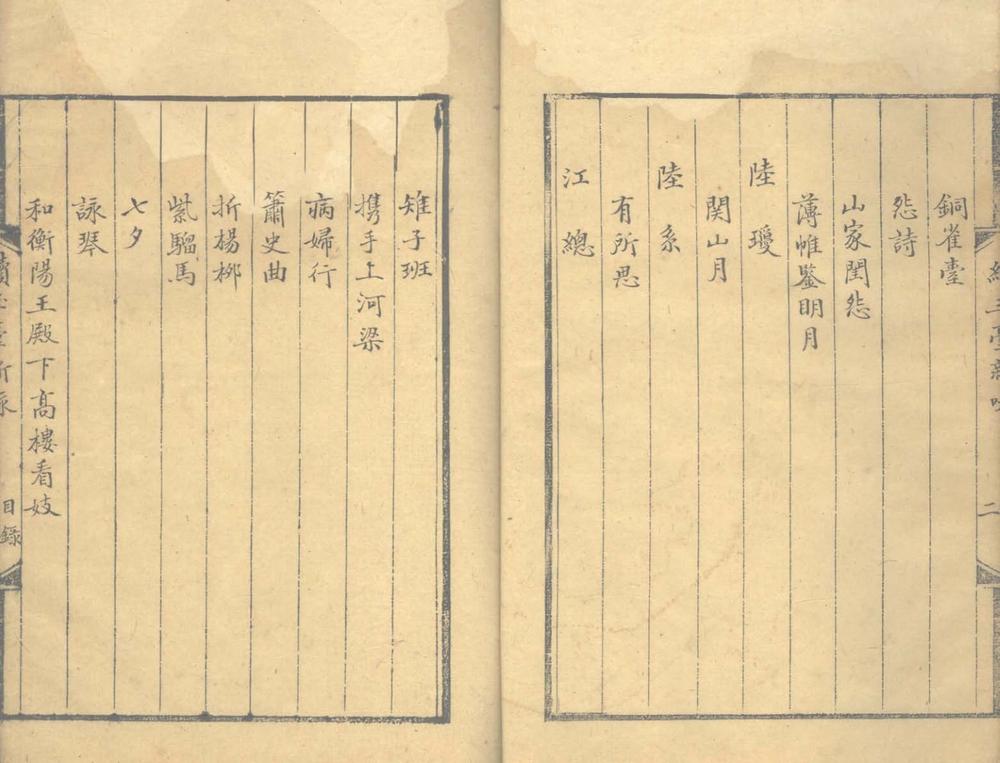 銅雀臺
怨詩
山家閨怨
薄帷鑒明月
陸瓊
関山月
陸系
有所思
江總
雉子班
携手上河梁
病婦行
簫史曲
折楊栁
紫騮馬
七夕
詠琴
和衡陽王殿下高樓看妓
目錄